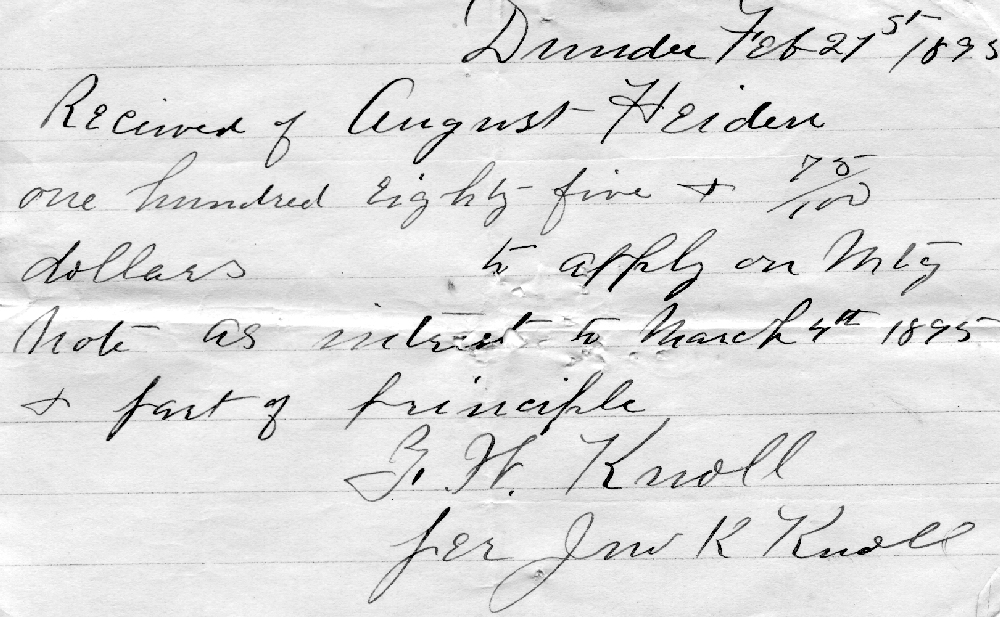 Dundee Feb 21st 1895
Recieved of August Heiden
one hundred Eighty five + 75/100
dollars to apply on Mtg
Note as interest to March 4th 1895
+ part of principle
G. W. Knoll
per Jno K Knoll